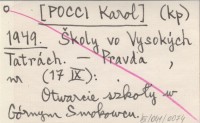 [POCCI Karol] (kp)
1949. Školy vo Vysokých
Tatrách. — Pravda,
nr (17 IX):
Otwarcie szkoły w
Górnym Smokowcu.